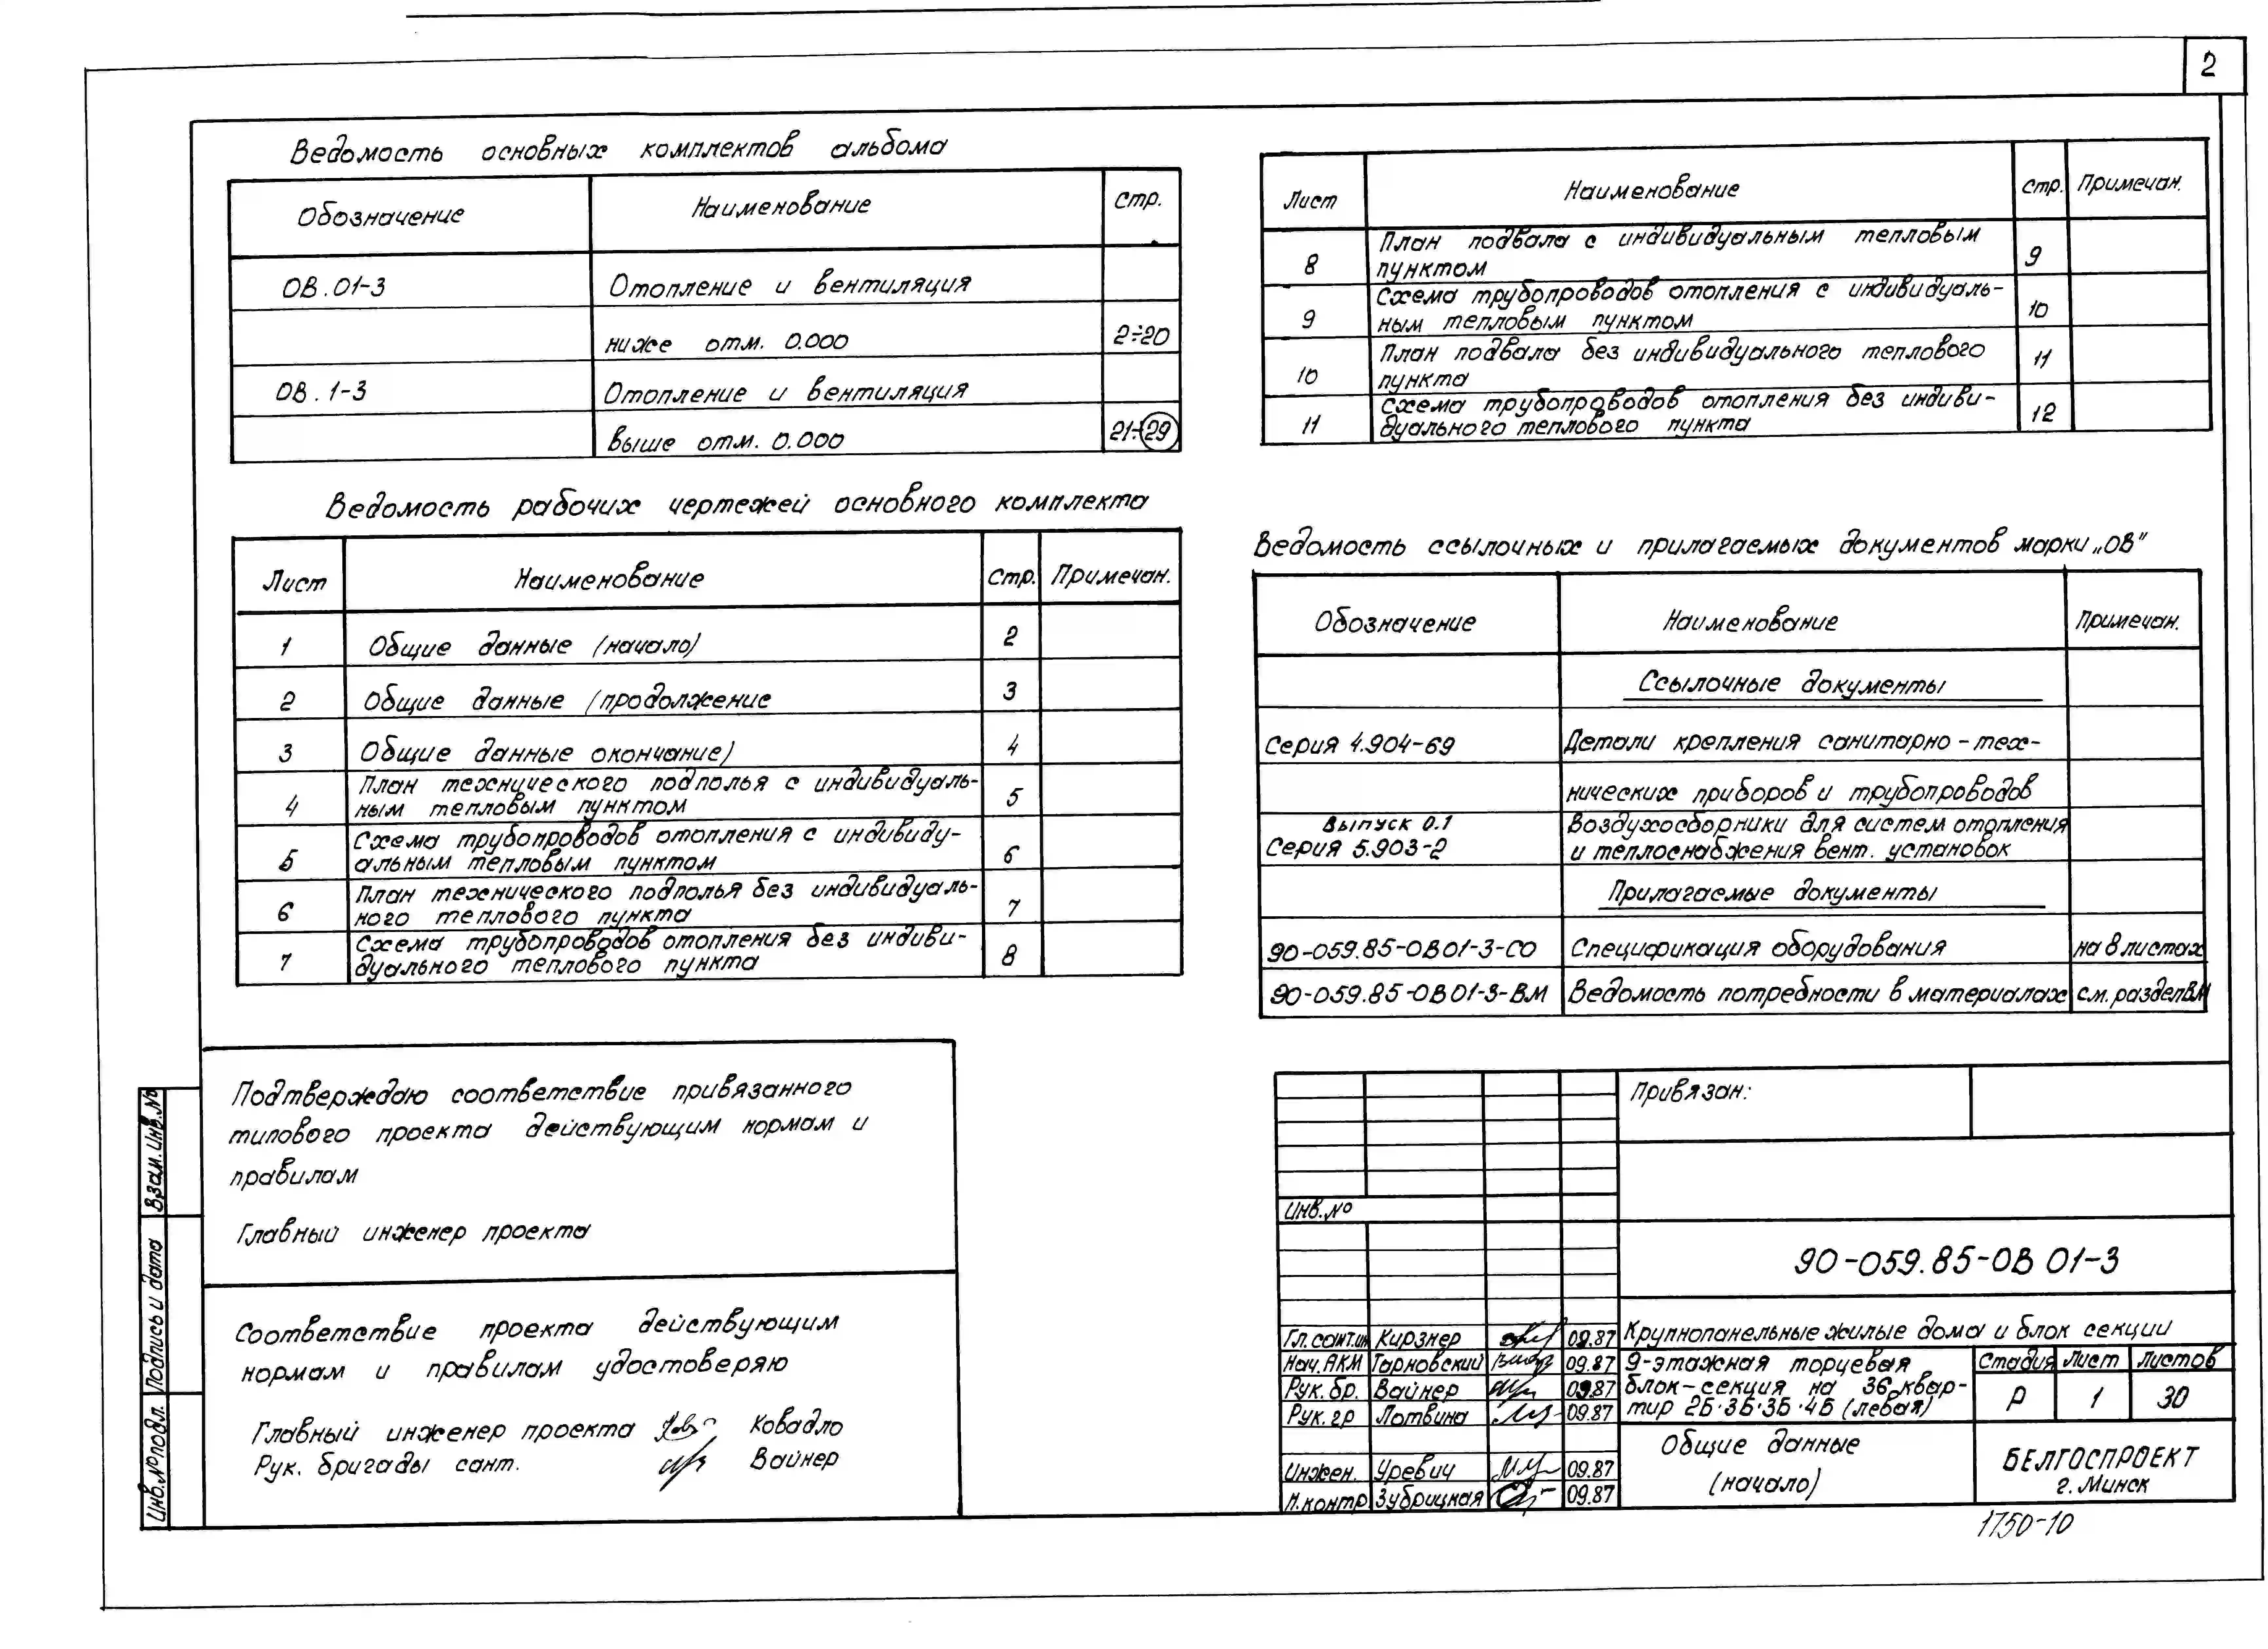 2
Ведомость основных комплектов альбома
Обозначение Наименование Стр.
ОВ.01-3 Отопление и вентиляция
ниже отм. 0.000 2÷20
ОВ.1-3 Отопление и вентиляция
выше отм. 0.000 21÷29
Ведомость рабочих чертежей основного комплекта
Лист Наименование Стр. Примечан.
1 Общие данные (начало) 2
2 Общие данные (продолжение 3
3 Общие данные окончание) 4
План технического подполья с индивидуаль-
4 ным тепловым пунктом 5
Схема трубопроводов отопления с индивиду-
5 альным тепловым пунктом 6
План технического подполья без индивидуаль-
6 ного теплового пункта 7
Схема трубопроводов отопления без индиви-
7 дуального теплового пункта 8
Лист Наименование Стр. Примечан.
План подвала с индивидуальным тепловым
8 пунктом 9
Схема трубопроводов отопления с индивидуаль-
9 ным тепловым пунктом 10
План подвала без индивидуального теплового
10 пункта 11
Схема трубопроводов отопления без индиви-
11 дуального теплового пункта 12
Ведомость ссылочных и прилагаемых документов марки „ОВ"
Обозначение Наименование Примечан.
Ссылочные документы
Серия 4.904-69 Детали крепления санитарно-тех-
нических приборов и трубопроводов
Выпуск 0.1 Воздухосборники для систем отопления
Серия 5.903-2 и теплоснабжения вент. установок
Прилагаемые документы
90-059.85-ОВ01-3-СО Спецификация оборудования на 8 листах
90-059.85-ОВ01-3-ВМ Ведомость потребности в материалах см. раздел ВМ
Подтверждаю соответствие привязанного
типового проекта действующим нормам и
правилам
Главный инженер проекта
Соответствие проекта действующим
нормам и правилам удостоверяю
Главный инженер проекта Ковадло
Рук. бригады сант. Вайнер
Взам. Инв.№
Подпись и дата
Инв.№подл.
Привязан:
Инв.№
90-059.85-ОВ 01-3
Гл. сант.ин Кирзнер 09.87 Крупнопанельные жилые дома и блок секции
Нач. АКМ Тарновский 09.87 9-этажная торцевая Стадия Лист Листов
Рук. бр. Вайнер 09.87 блок-секция на 36 квар-
Рук. гр Лотвина 09.87 тир 2Б·3Б·3Б·4Б (левая) Р 1 30
Общие данные
Инжен. Уревич 09.87 (начало)
Н.контр Зубрицкая 09.87
БЕЛГОСПРОЕКТ
г. Минск
1750-10